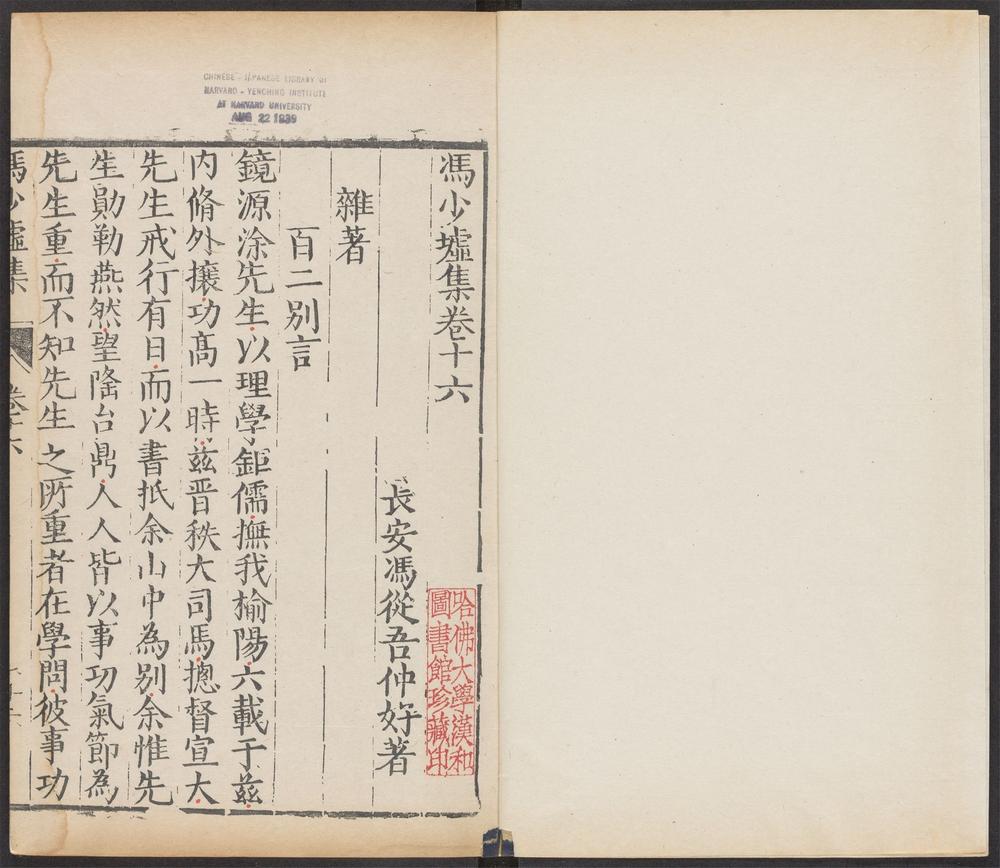 CHINESE - JAPANESE LIBRARY OF
HARVARD - YENCHING INSTITUTE
AT HARVARD UNIVERSITY
AUG 22 1939
馮少墟集卷十六
哈佛大學漢和
圖書館珍藏印
長安馮從吾仲好著
雜著
百二別言
鏡源涂先生以理學鉅儒撫我榆陽六載于茲
內脩外攘功髙一時茲晉秩大司馬摠督宣大
先生戒行有日而以書抵余山中為別余惟先
生勛勒燕然望隆台鼎人人皆以事功氣節為
先生重而不知先生之所重者在學問彼事功
馮少墟集
卷十六